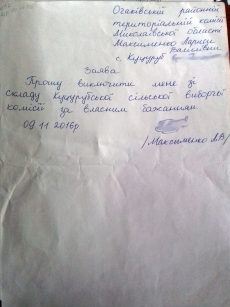 Очаківській районній
територіальній комісії
Миколаївської області
Максименко Лариси
Василівни
с. Куцуруб
Заява
Прошу виключити мене зі
складу Куцурубської сільської виборчої
комісії за власним бажанням.
09.11.2016р.
/Максименко Л.В/